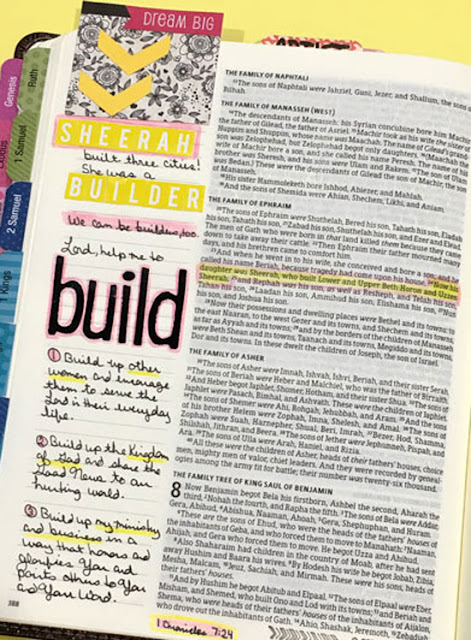 DREAM BIG
ARTIST
Genesis
Ruth
Exodus
1 Samuel
2 Samuel
1 Kings
SHEERAH
built three cities!
She was a
BUILDER
We can be builders, too.
Lord, help me to
build
① Build up other
women and encourage
them to serve the
Lord in their everyday
life.
② Build up the Kingdom
of God and share the
Good News to an
hurting world.
③ Build up my ministry
and business in a
way that honors and
glorifies You and
points others to You
and Your Word.
388
THE FAMILY OF NAPHTALI
¹³The sons of Naphtali were Jahziel, Guni, Jezer, and Shallum, the sons
Bilhah.
THE FAMILY OF MANASSEH (WEST)
¹⁴The descendants of Manasseh: his Syrian concubine bore him Machir
the father of Gilead, the father of Asriel. ¹⁵Machir took as his wife the sister
Huppim and Shuppim, whose name was Maachah. The name of Gilead's grand
was Zelophehad, but Zelophehad begot only daughters. ¹⁶(Maachah the
wife of Machir bore a son, and she called his name Peresh. The name of his
brother was Sheresh, and his sons were Ulam and Rakem. ¹⁷The son of Ulam
was Bedan.) These were the descendants of Gilead the son of Machir, the son
of Manasseh.
¹⁸His sister Hammoleketh bore Ishhod, Abiezer, and Mahlah.
¹⁹And the sons of Shemida were Ahian, Shechem, Likhi, and Aniam.
THE FAMILY OF EPHRAIM
²⁰The sons of Ephraim were Shuthelah, Bered his son, Tahath his son, Eladah
his son, Tahath his son, ²¹Zabad his son, Shuthelah his son, and Ezer and Elead.
The men of Gath who were born in that land killed them because they came
down to take away their cattle. ²²Then Ephraim their father mourned many
days, and his brethren came to comfort him.
²³And when he went in to his wife, she conceived and bore a son; and he
called his name Beriah, because tragedy had come upon his house. ²⁴Now his
daughter was Sheerah, who built Lower and Upper Beth Horon and Uzzen
Sheerah; ²⁵and Rephah was his son, as well as Resheph, and Telah his son,
Tahan his son, ²⁶Laadan his son, Ammihud his son, Elishama his son, ²⁷Nun
his son, and Joshua his son.
²⁸Now their possessions and dwelling places were Bethel and its towns: to
the east Naaran, to the west Gezer and its towns, and Shechem and its towns,
as far as Ayyah and its towns; ²⁹and by the borders of the children of Manasseh
were Beth Shean and its towns, Taanach and its towns, Megiddo and its towns,
Dor and its towns. In these dwelt the children of Joseph, the son of Israel.
THE FAMILY OF ASHER
³⁰The sons of Asher were Imnah, Ishvah, Ishvi, Beriah, and their sister Serah.
³¹The sons of Beriah were Heber and Malchiel, who was the father of Birzaith.
³²And Heber begot Japhlet, Shomer, Hotham, and their sister Shua. ³³The sons of
Japhlet were Pasach, Bimhal, and Ashvath. These were the children of Japhlet.
³⁴The sons of Shemer were Ahi, Rohgah, Jehubbah, and Aram. ³⁵And the sons
of his brother Helem were Zophah, Imna, Shelesh, and Amal. ³⁶The sons of
Zophah were Suah, Harnepher, Shual, Beri, Imrah, ³⁷Bezer, Hod, Shamma,
Shilshah, Jithran, and Beera. ³⁸The sons of Jether were Jephunneh, Pispah, and
Ara. ³⁹The sons of Ulla were Arah, Haniel, and Rizia.
⁴⁰All these were the children of Asher, heads of their fathers' houses, choice
men, mighty men of valor, chief leaders. And they were recorded by geneal-
ogies among the army fit for battle; their number was twenty-six thousand.
THE FAMILY TREE OF KING SAUL OF BENJAMIN
8 Now Benjamin begot Bela his firstborn, Ashbel the second, Aharah the
third, ²Nohah the fourth, and Rapha the fifth. ³The sons of Bela were Addar,
Gera, Abihud, ⁴Abishua, Naaman, Ahoah, ⁵Gera, Shephuphan, and Huram.
⁶These are the sons of Ehud, who were the heads of the fathers' houses of
the inhabitants of Geba, and who forced them to move to Manahath: ⁷Naaman,
Ahijah, and Gera who forced them to move. He begot Uzza and Ahihud.
⁸Also Shaharaim had children in the country of Moab, after he had sent
away Hushim and Baara his wives. ⁹By Hodesh his wife he begot Jobab, Zibia,
Mesha, Malcam, ¹⁰Jeuz, Sachiah, and Mirmah. These were his sons, heads of
their fathers' houses.
¹¹And by Hushim he begot Abitub and Elpaal. ¹²The sons of Elpaal were Eber,
Misham, and Shemed, who built Ono and Lod with its towns; ¹³and Beriah and
Shema, who were heads of their fathers' houses of the inhabitants of Aijalon,
who drove out the inhabitants of Gath. ¹⁴Ahio, Shashak, Jeremoth, ¹⁵Zebadiah,
1 Chronicles 7:24